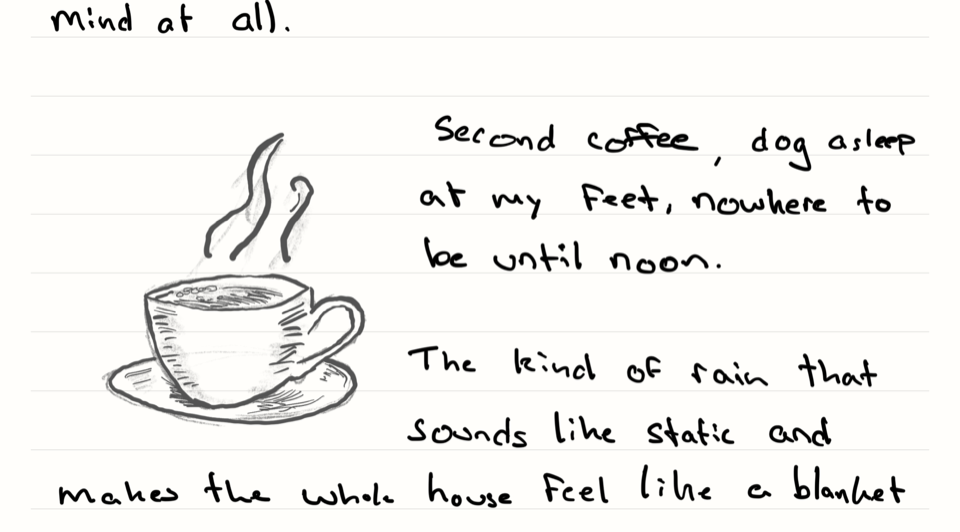 mind at all.
Second coffee, dog asleep
at my feet, nowhere to
be until noon.
The kind of rain that
sounds like static and
makes the whole house feel like a blanket